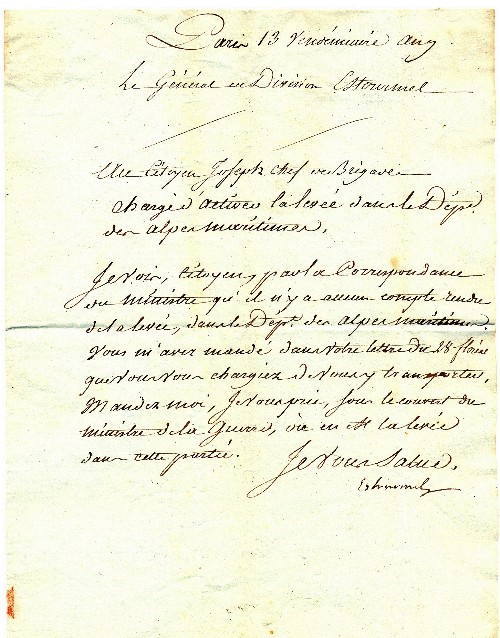 Paris 13 Vendémiaire an 9
Le Général de Division Estourmel
Au Citoyen Joseph Chef de Brigade
chargé d'activer la levée dans le Dépt.
des alpes maritimes.
Je vois, Citoyen, par la Correspondance
du ministre qu'il n'y a aucun compte rendu
de la levée, dans le Dépt. des alpes maritimes.
Vous m'avez mandé dans votre lettre du 28 floréal
que vous vous chargiez de vous y transporter.
Mandez moi, je vous prie, sous le couvert du
ministre de la Guerre, où en est la levée
dans cette partie.
Je vous Salue.
Estourmel